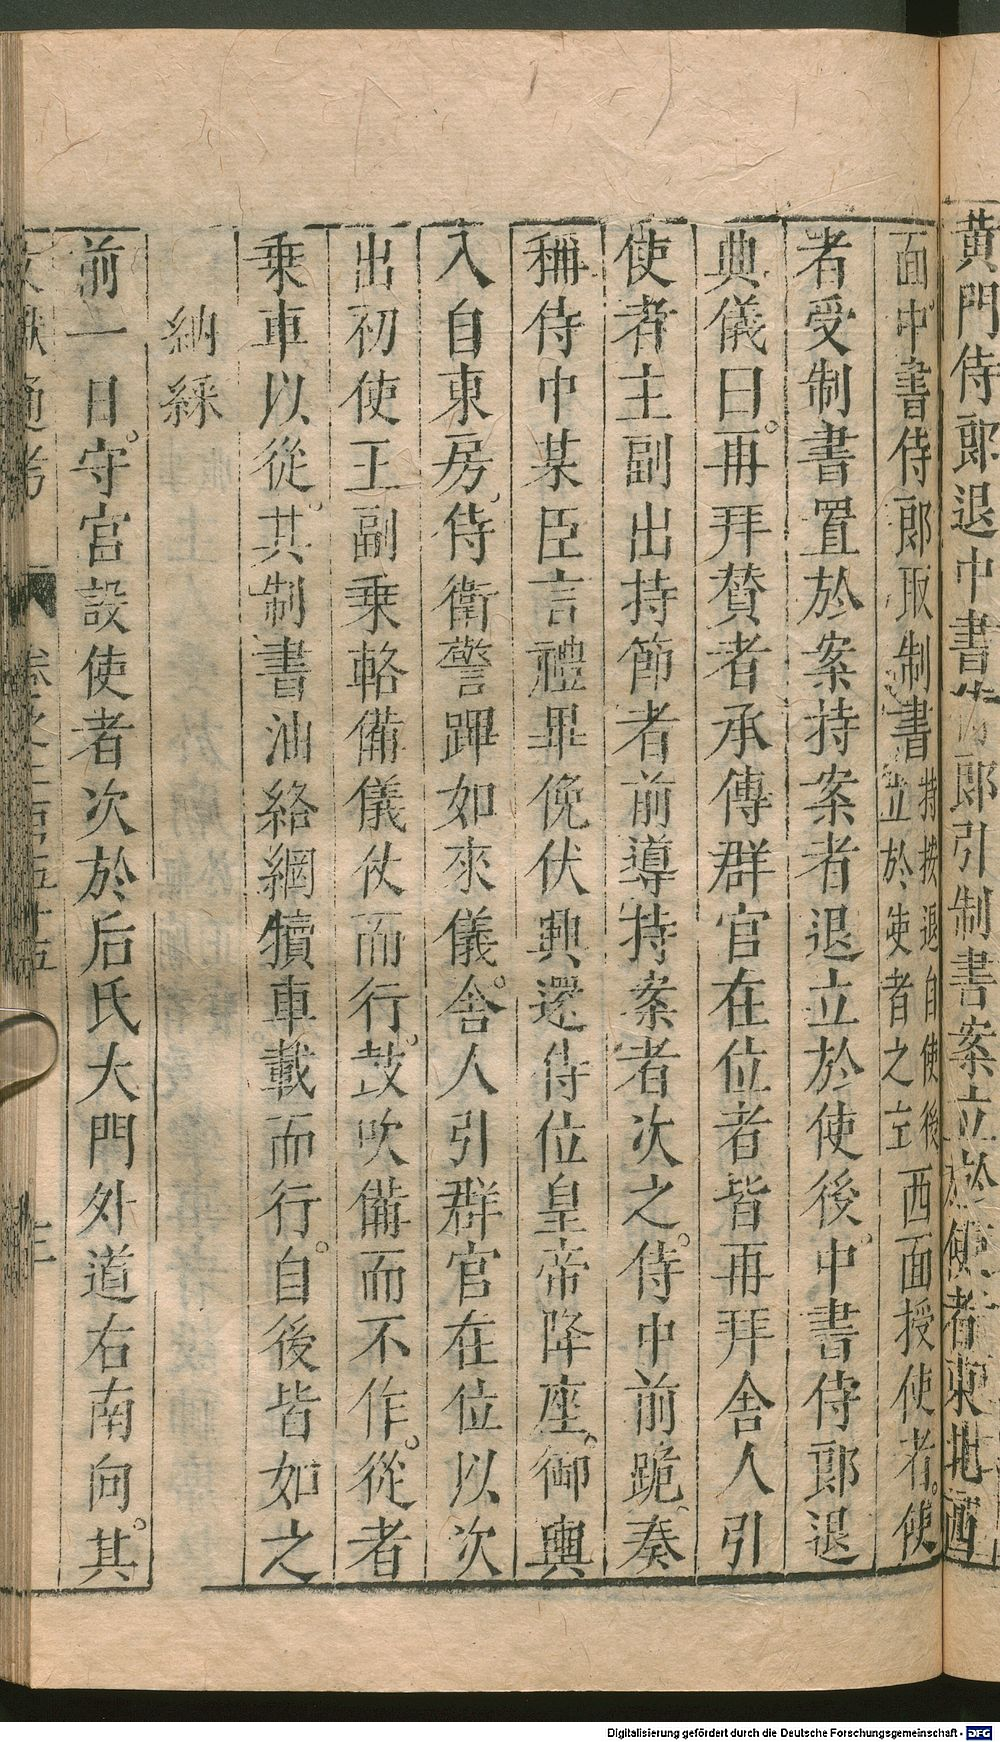 黄門侍郎退中書侍郎引制書案立於使者東北西
面中書侍郎取制書持按退自使後立於使者之左西面授使者使
者受制書置於案持案者退立於使後中書侍郎退
典儀曰再拜賛者承傳群官在位者皆再拜舎人引
使者主副出持節者前導持案者次之侍中前跪奏
稱侍中某臣言禮畢俛伏興還侍位皇帝降座御輿
入自東房侍衛警蹕如來儀舎人引群官在位以次
出初使王副乗輅備儀仗而行鼓吹備而不作從者
乗車以從其制書油絡網犢車載而行自後皆如之
納綵
前一日守宫設使者次於后氏大門外道右南向其
文獻通考 卷之二百五十五 三
Digitalisierung gefördert durch die Deutsche Forschungsgemeinschaft - DFG